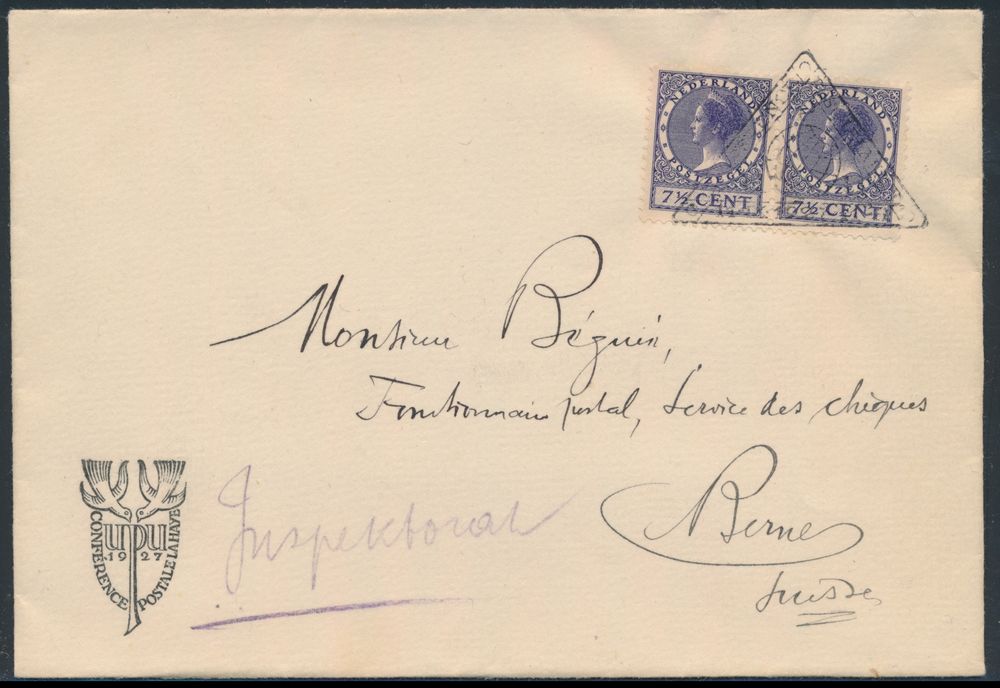 NEDERLAND POSTZEGEL 7½ CENT
NEDERLAND POSTZEGEL 7½ CENT
Monsieur Béguin,
Fonctionnaire postal, Service des chèques
Berne
Suisse
Inspektorat
UPU
1927
CONFÉRENCE POSTALE LA HAYE